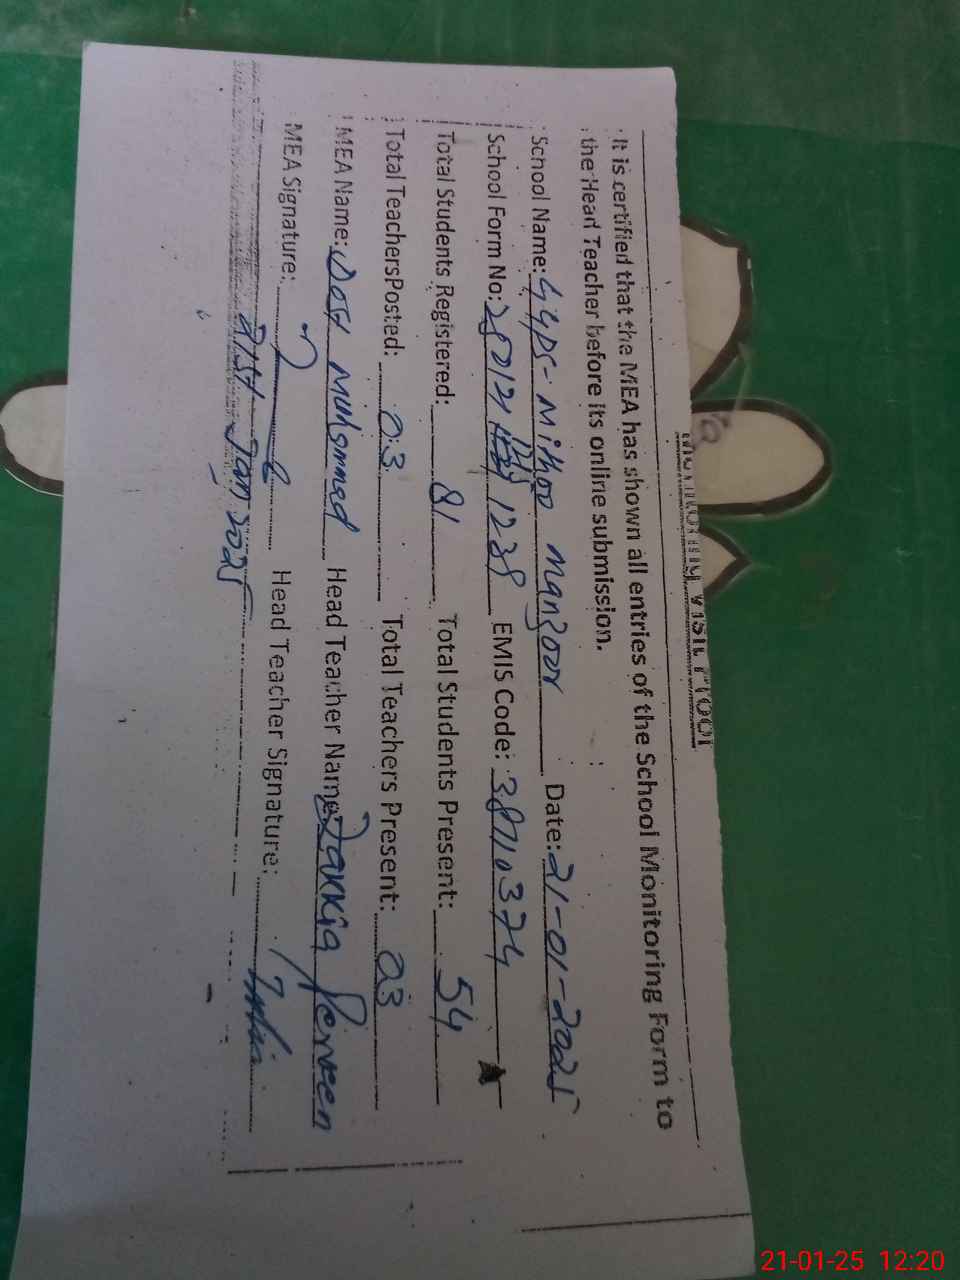 Monitoring Visit Proof
It is certified that the MEA has shown all entries of the School Monitoring Form to
the Head Teacher before its online submission.
School Name: GGPS- Mithoo Manzoor Date: 21-01-2025
School Form No: EMIS Code: 38710374
Total Students Registered: 81 Total Students Present: 54
Total TeachersPosted: 03 Total Teachers Present: 03
MEA Name: Dost Muhammad Head Teacher Name: Zakkia Perveen
MEA Signature: Head Teacher Signature:
21st Jan 2025
21-01-25 12:20